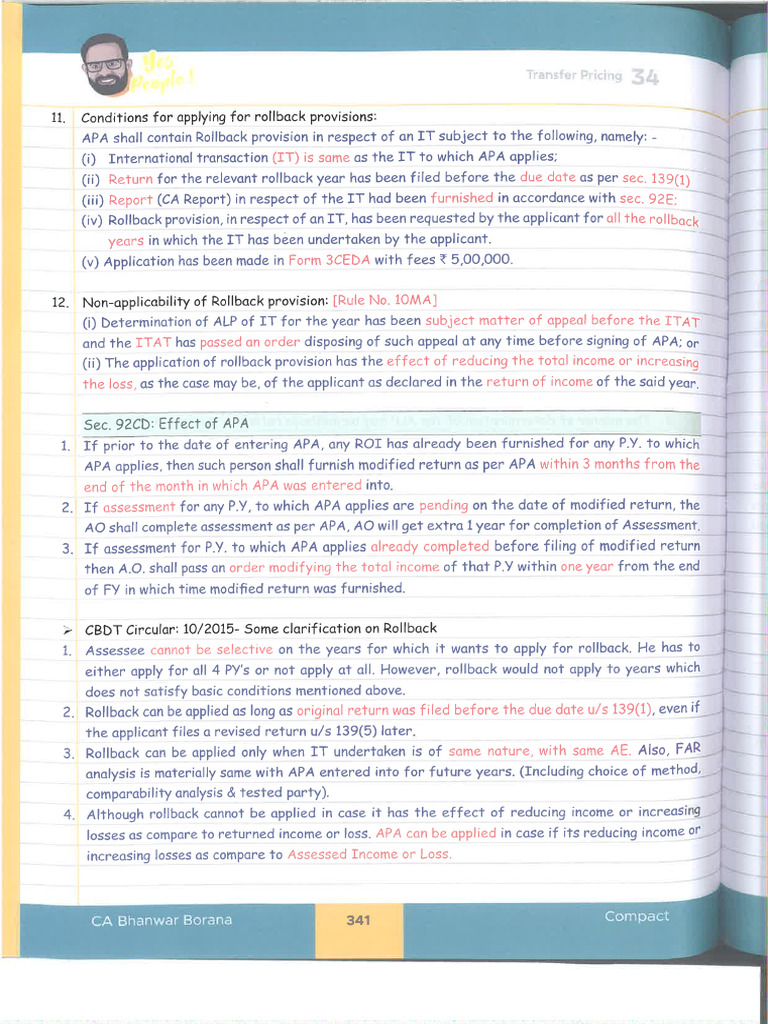 Yes
People!
Transfer Pricing 34
11. Conditions for applying for rollback provisions:
APA shall contain Rollback provision in respect of an IT subject to the following, namely: -
(i) International transaction (IT) is same as the IT to which APA applies;
(ii) Return for the relevant rollback year has been filed before the due date as per sec. 139(1)
(iii) Report (CA Report) in respect of the IT had been furnished in accordance with sec. 92E;
(iv) Rollback provision, in respect of an IT, has been requested by the applicant for all the rollback
years in which the IT has been undertaken by the applicant.
(v) Application has been made in Form 3CEDA with fees ₹ 5,00,000.
12. Non-applicability of Rollback provision: [Rule No. 10MA]
(i) Determination of ALP of IT for the year has been subject matter of appeal before the ITAT
and the ITAT has passed an order disposing of such appeal at any time before signing of APA; or
(ii) The application of rollback provision has the effect of reducing the total income or increasing
the loss, as the case may be, of the applicant as declared in the return of income of the said year.
Sec. 92CD: Effect of APA
1. If prior to the date of entering APA, any ROI has already been furnished for any P.Y. to which
APA applies, then such person shall furnish modified return as per APA within 3 months from the
end of the month in which APA was entered into.
2. If assessment for any P.Y, to which APA applies are pending on the date of modified return, the
AO shall complete assessment as per APA, AO will get extra 1 year for completion of Assessment.
3. If assessment for P.Y. to which APA applies already completed before filing of modified return
then A.O. shall pass an order modifying the total income of that P.Y within one year from the end
of FY in which time modified return was furnished.
➢ CBDT Circular: 10/2015- Some clarification on Rollback
1. Assessee cannot be selective on the years for which it wants to apply for rollback. He has to
either apply for all 4 PY's or not apply at all. However, rollback would not apply to years which
does not satisfy basic conditions mentioned above.
2. Rollback can be applied as long as original return was filed before the due date u/s 139(1), even if
the applicant files a revised return u/s 139(5) later.
3. Rollback can be applied only when IT undertaken is of same nature, with same AE. Also, FAR
analysis is materially same with APA entered into for future years. (Including choice of method,
comparability analysis & tested party).
4. Although rollback cannot be applied in case it has the effect of reducing income or increasing
losses as compare to returned income or loss. APA can be applied in case if its reducing income or
increasing losses as compare to Assessed Income or Loss.
CA Bhanwar Borana 341 Compact